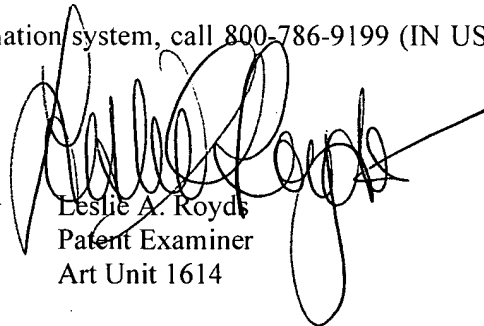 nation system, call 800-786-9199 (IN US
Leslie Royds
Leslie A. Royds
Patent Examiner
Art Unit 1614